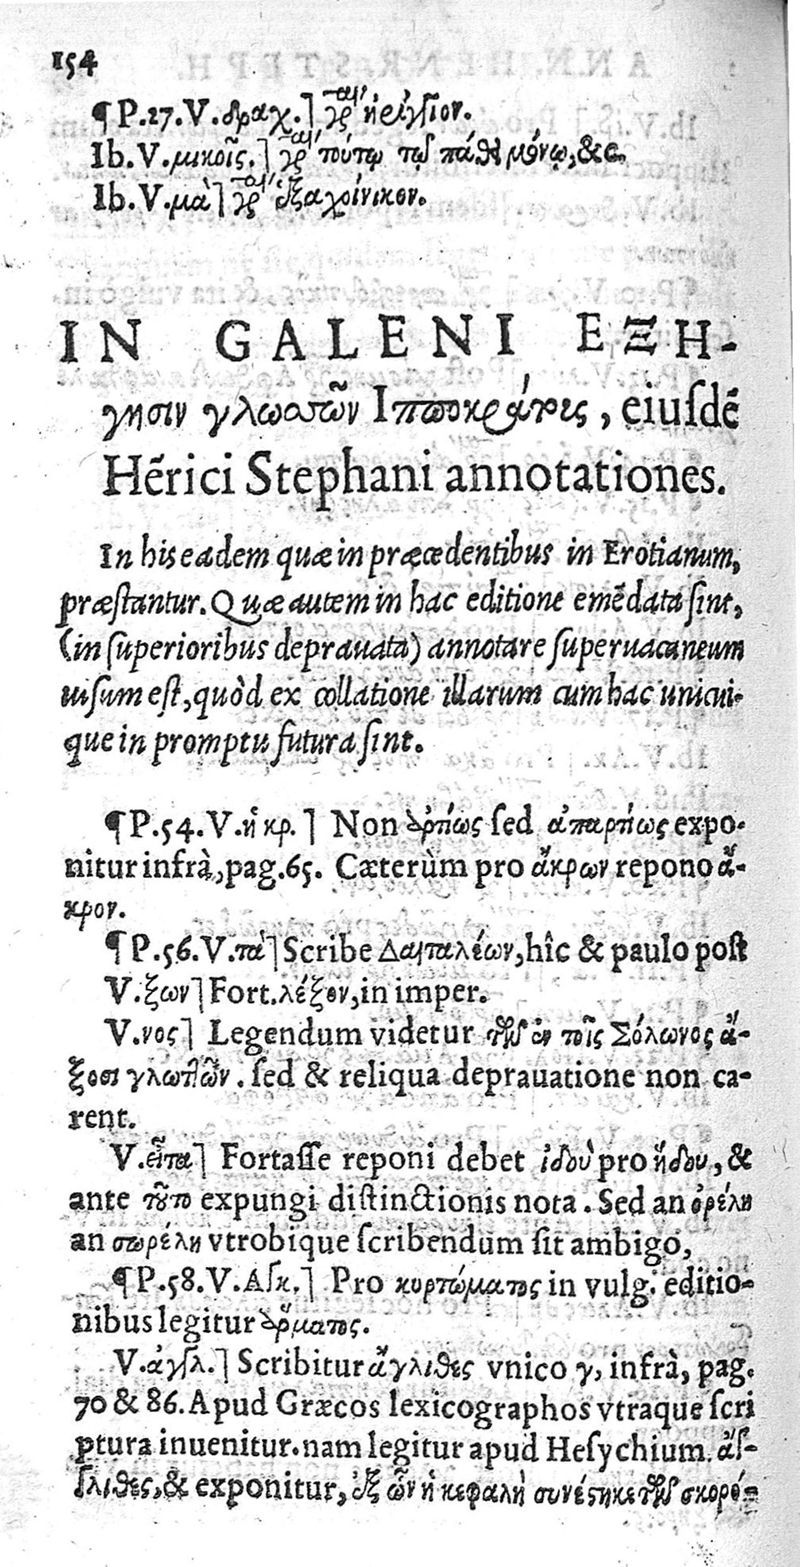 154
¶P.27.V.δραχ.] γρ καὶ ἡ εἴγσιον.
Ib.V.μικοῖς.] γρ καὶ τούτῳ τῷ πάθει μόνῳ, &c.
Ib.V.μα] γρ καὶ ἑξαχοίνικον.
IN GALENI ΕΞΗ-
γησιν γλωσσῶν Ιπποκράτους, eiusdē
Hērici Stephani annotationes.
In his eadem quæ in præcedentibus in Erotianum,
præstantur. Quæ autem in hac editione emēdata sint,
(in superioribus deprauata) annotare superuacaneum
uisum est, quòd ex collatione illarum cum hac unicui-
que in promptu futura sint.
¶P.54.V.ἡ κρ.] Non ἀρτίως sed ἀπαρτίως expo-
nitur infrà, pag.65. Cæterùm pro ἄκρων repono ἄ-
κρον.
¶P.56.V.πα] Scribe Δαιταλέων, hîc & paulo pòst
V.ξων] Fort. λέξον, in imper.
V.νος] Legendum videtur τῶν ἐν τοῖς Σόλωνος ἄ-
ξοσι γλωττῶν. sed & reliqua deprauatione non ca-
rent.
V.εἶπα] Fortasse reponi debet ἰδοὺ pro ἤδου, &
ante τοῦτο expungi distinctionis nota. Sed an ὀρέλη
an σωρέλη vtrobique scribendum sit ambigo,
¶P.58.V.Ασκ.] Pro κυρτώματος in vulg. editio-
nibus legitur ἅρματος.
V.ἀγγλ.] Scribitur ἄγλιθες vnico γ, infrà, pag.
70 & 86. Apud Græcos lexicographos vtraque scri
ptura inuenitur. nam legitur apud Hesychium ἄγ-
γλιθες, & exponitur, ἐξ ὧν ἡ κεφαλὴ συνέστηκε τῶν σκορό-